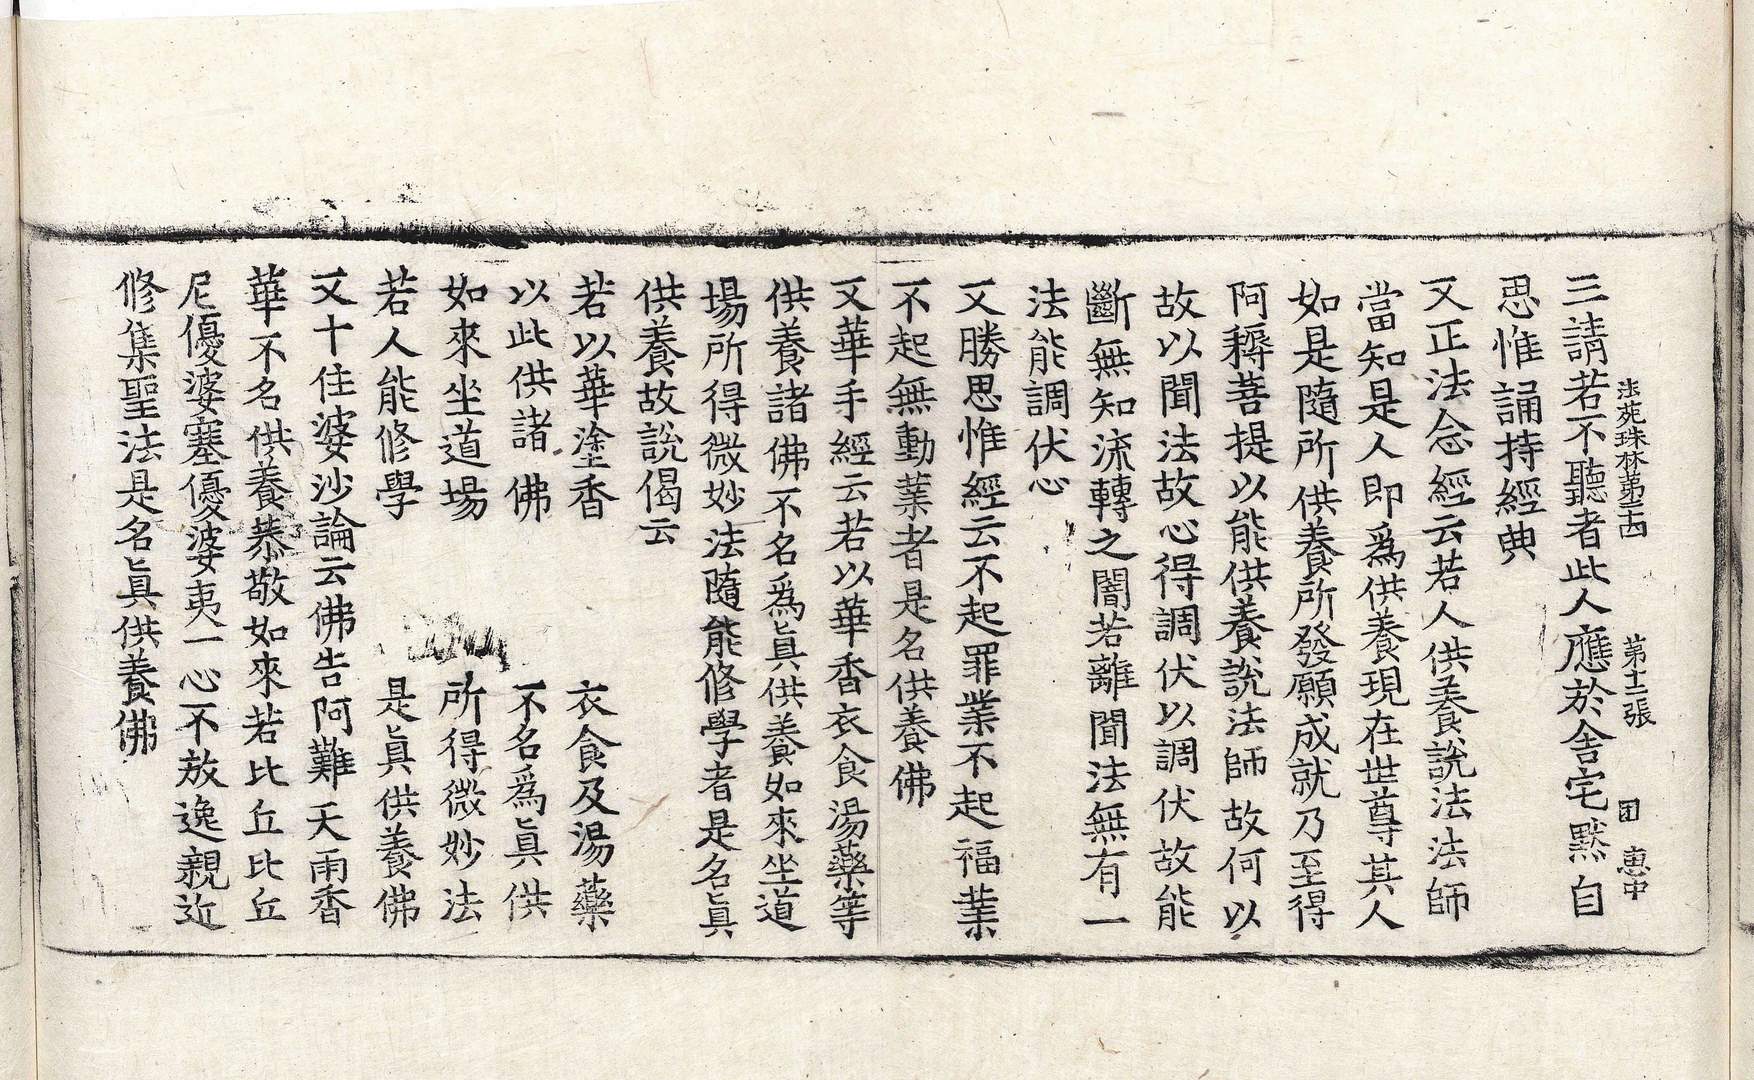 法苑珠林苐　苐十二張　惠中
三請若不聽者此人應於舍宅默自
思惟誦持經典
又正法念經云若人供養說法法師
當知是人即爲供養現在世尊其人
如是隨所供養所發願成就乃至得
阿耨菩提以能供養說法師故何以
故以聞法故心得調伏以調伏故能
斷無知流轉之闇若離聞法無有一
法能調伏心
又勝思惟經云不起罪業不起福業
不起無動業者是名供養佛
又華手經云若以華香衣食湯藥等
供養諸佛不名爲眞供養如來坐道
場所得微妙法隨能修學者是名眞
供養故說偈云
若以華塗香　衣食及湯藥
以此供諸佛　不名爲眞供
如來坐道場　所得微妙法
若人能修學　是眞供養佛
又十住婆沙論云佛告阿難天雨香
華不名供養恭敬如來若比丘比丘
尼優婆塞優婆夷一心不放逸親近
修集聖法是名眞供養佛